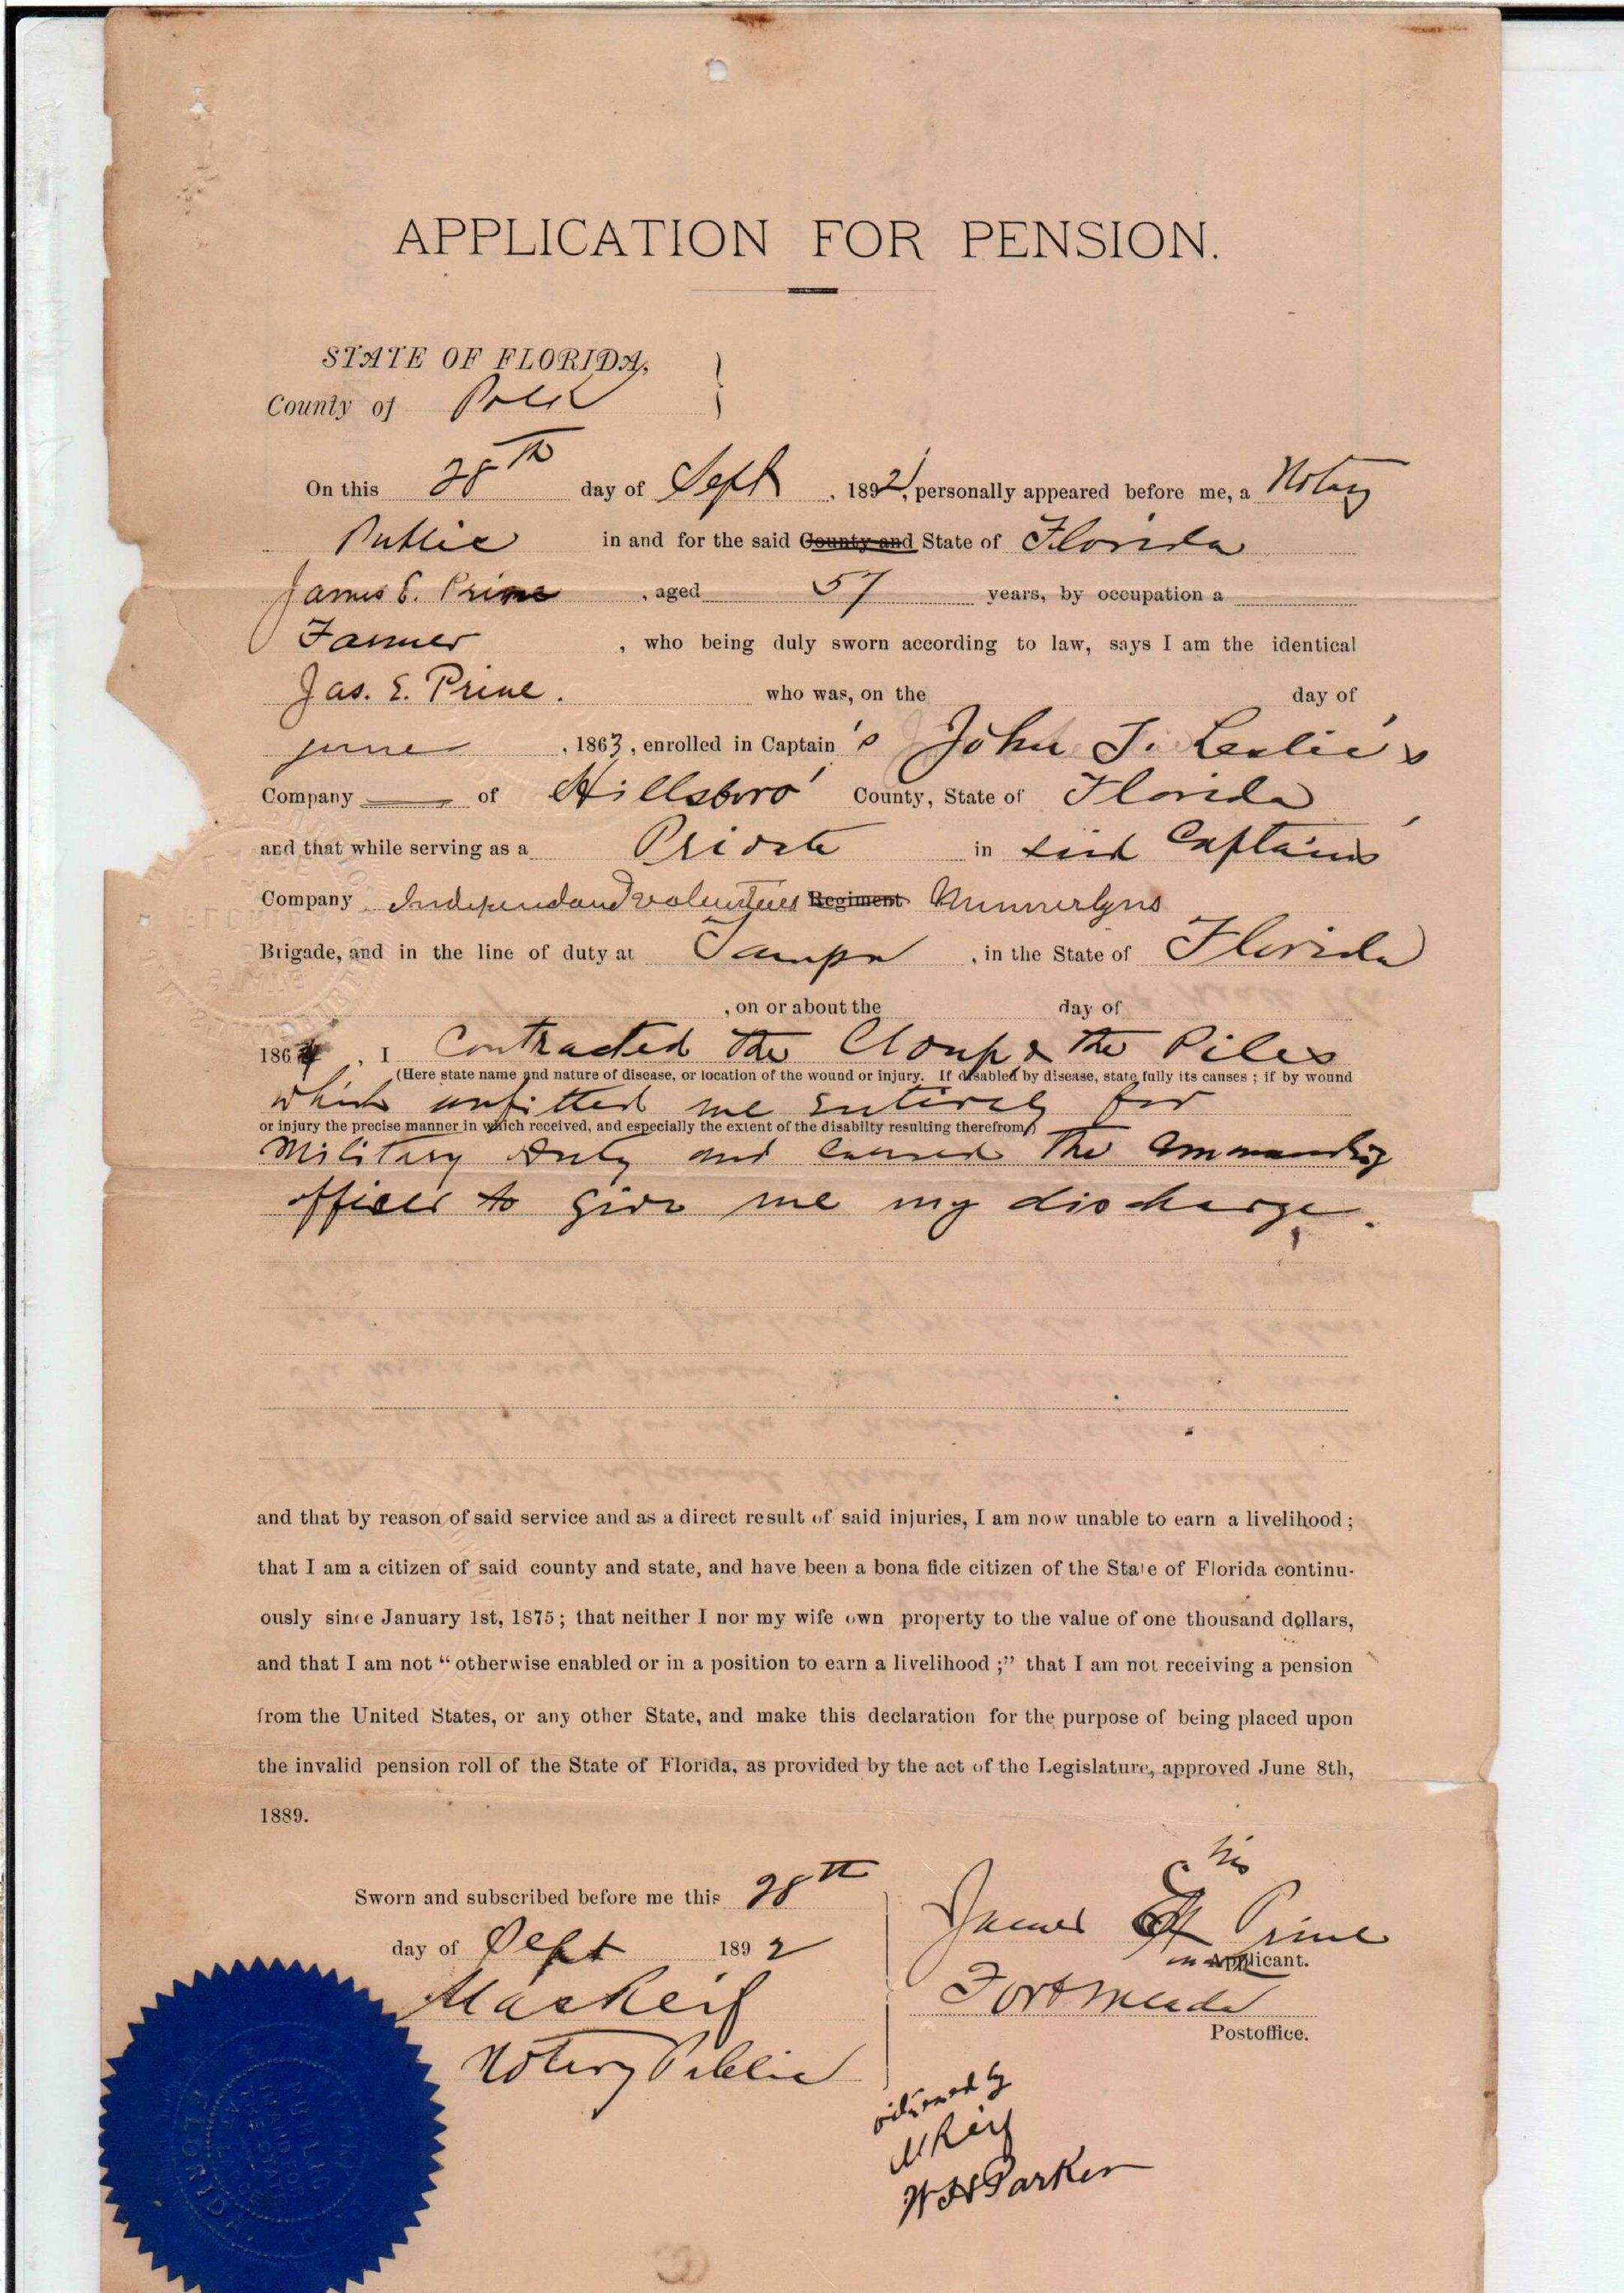 APPLICATION FOR PENSION.
STATE OF FLORIDA,
County of Polk
On this 28th day of Sept, 1892, personally appeared before me, a Notary
Public in and for the said County and State of Florida
James E. Prine, aged 57 years, by occupation a
Farmer, who being duly sworn according to law, says I am the identical
Jas. E. Prine. who was, on the day of
june, 1863, enrolled in Captain's John T. Leslie's
Company — of Hillsboro' County, State of Florida
and that while serving as a Private in said Captain's
Company Independand volunteers Regiment Munnerlyns
Brigade, and in the line of duty at Tampa, in the State of Florida
, on or about the day of
1864, I Contracted the & the Piles
(Here state name and nature of disease, or location of the wound or injury. If disabled by disease, state fully its causes; if by wound
which unfitted me entirely for
or injury the precise manner in which received, and especially the extent of the disabilty resulting therefrom)
Military duty and caused the Commanding
officer to give me my discharge.
and that by reason of said service and as a direct result of said injuries, I am now unable to earn a livelihood;
that I am a citizen of said county and state, and have been a bona fide citizen of the State of Florida continu-
ously since January 1st, 1875; that neither I nor my wife own property to the value of one thousand dollars,
and that I am not "otherwise enabled or in a position to earn a livelihood;" that I am not receiving a pension
from the United States, or any other State, and make this declaration for the purpose of being placed upon
the invalid pension roll of the State of Florida, as provided by the act of the Legislature, approved June 8th,
1889.
Sworn and subscribed before me this 28th
day of Sept 1892
Notary Public
his
James E X Prine
mark
Applicant.
Fort Meade
Postoffice.
witnessed by
W H Parker